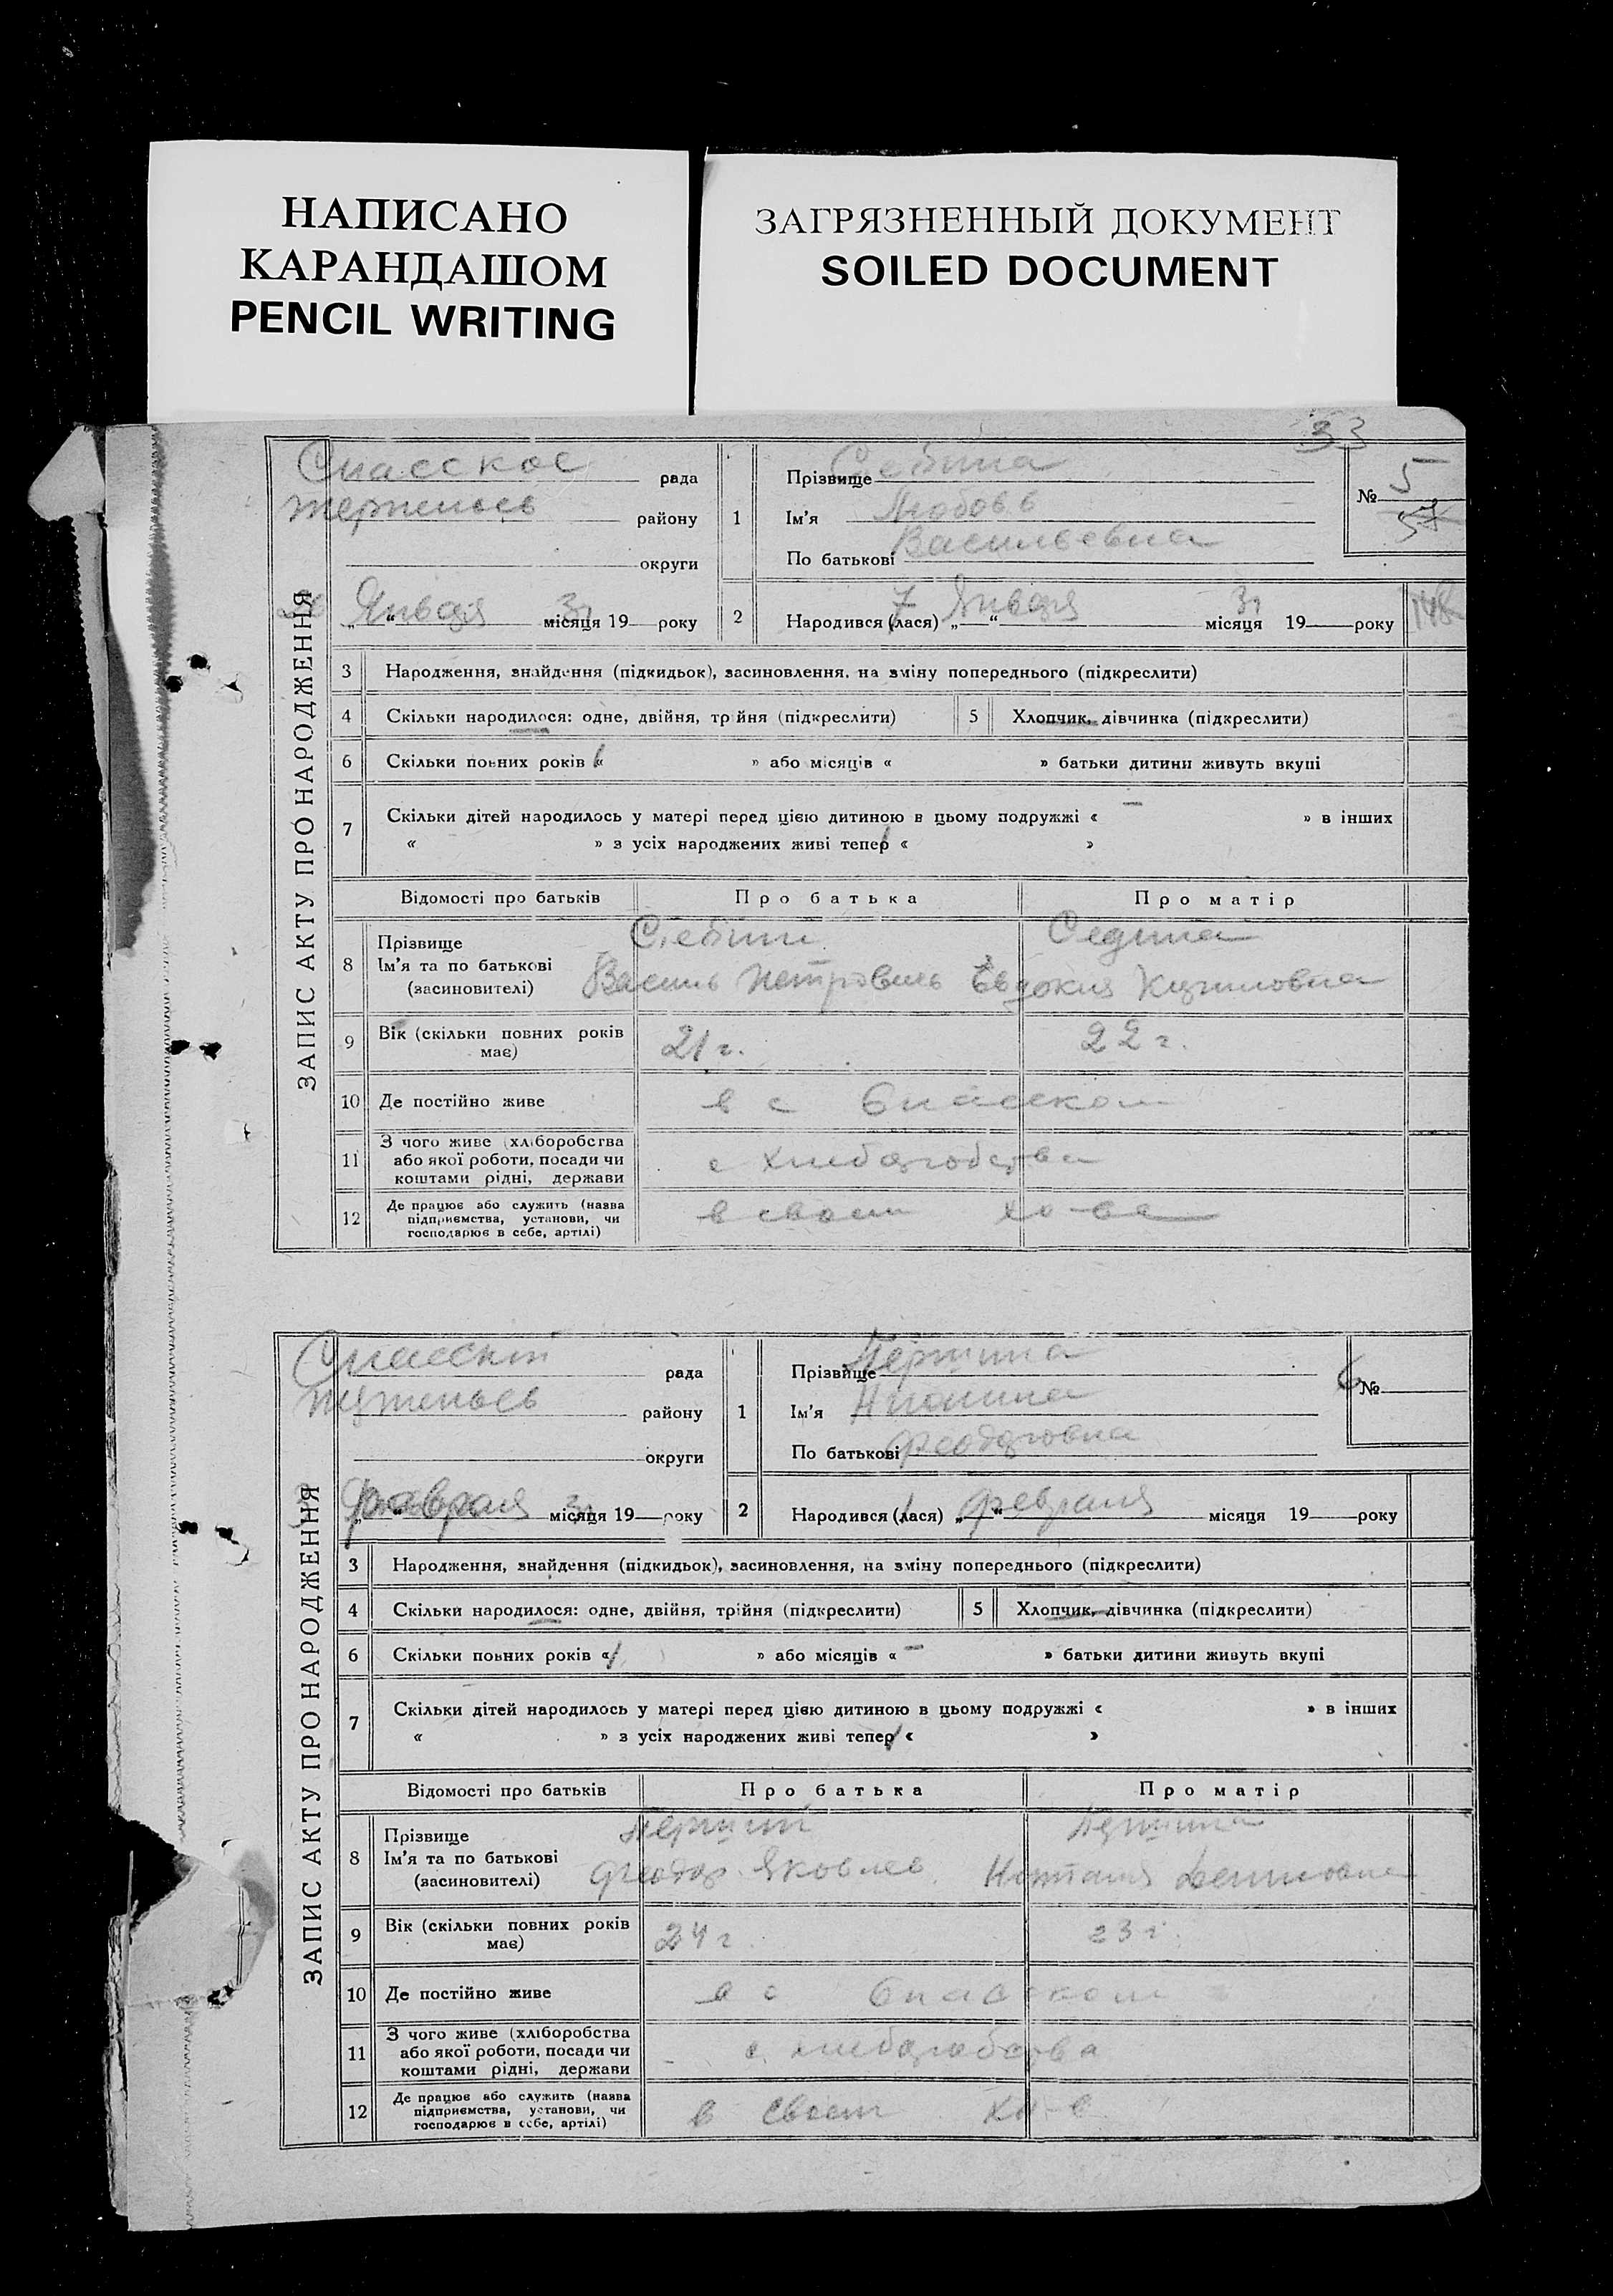 НАПИСАНО
КАРАНДАШОМ
PENCIL WRITING
ЗАГРЯЗНЕННЫЙ ДОКУМЕНТ
SOILED DOCUMENT
33
ЗАПИС АКТУ ПРО НАРОДЖЕННЯ
Спасское рада
району
округи
Января місяця 1931 року
1
Прізвище
Ім'я Любовь
По батькові Васильевна
№ 5
2
Народився (лася) „7“ Января місяця 1931 року
148
3 Народження, знайдення (підкидьок), засиновлення, на зміну попереднього (підкреслити)
4 Скільки народилося: одне, двійня, трійня (підкреслити) 5 Хлопчик, дівчинка (підкреслити)
6 Скільки повних років « 1 » або місяців « » батьки дитини живуть вкупі
7 Скільки дітей народилось у матері перед цією дитиною в цьому подружжі « — » в інших
« » з усіх народжених живі тепер « 1 »
Відомості про батьків Про батька Про матір
8 Прізвище
Ім'я та по батькові Василь Петрович Евдокия
(засиновителі)
9 Вік (скільки повних років має) 21 г. 22 г.
10 Де постійно живе в с Спасском
11 З чого живе (хліборобства або якої роботи, посади чи коштами рідні, держави с хлеборобства
12 Де працює або служить (назва підприємства, установи, чи господарює в себе, артілі) в своем хо-ве
ЗАПИС АКТУ ПРО НАРОДЖЕННЯ
рада
району
округи
Февраля місяця 1931 року
1
Прізвище
Ім'я
По батькові Феодоровна
6 №
2
Народився (лася) „ “ Февраля місяця 19 року
3 Народження, знайдення (підкидьок), засиновлення, на зміну попереднього (підкреслити)
4 Скільки народилося: одне, двійня, трійня (підкреслити) 5 Хлопчик, дівчинка (підкреслити)
6 Скільки повних років « 1 » або місяців « — » батьки дитини живуть вкупі
7 Скільки дітей народилось у матері перед цією дитиною в цьому подружжі « » в інших
« » з усіх народжених живі тепер « 1 »
Відомості про батьків Про батька Про матір
8 Прізвище
Ім'я та по батькові Феодор Яковлев
(засиновителі)
9 Вік (скільки повних років має) 24 г 23 г.
10 Де постійно живе в с Спасском
11 З чого живе (хліборобства або якої роботи, посади чи коштами рідні, держави с хлеборобства
12 Де працює або служить (назва підприємства, установи, чи господарює в себе, артілі) в своем хо-в